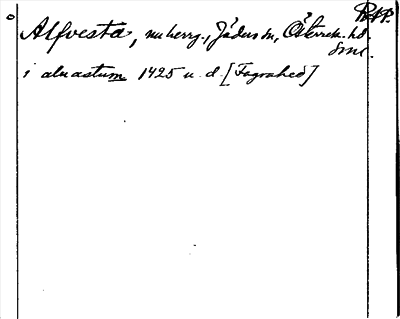 RAP.
Alfvesta, nu herrg., Jäders sn, Österrek. hd
Sml.
i aluastum 1425 u. d. [Fagrahed]